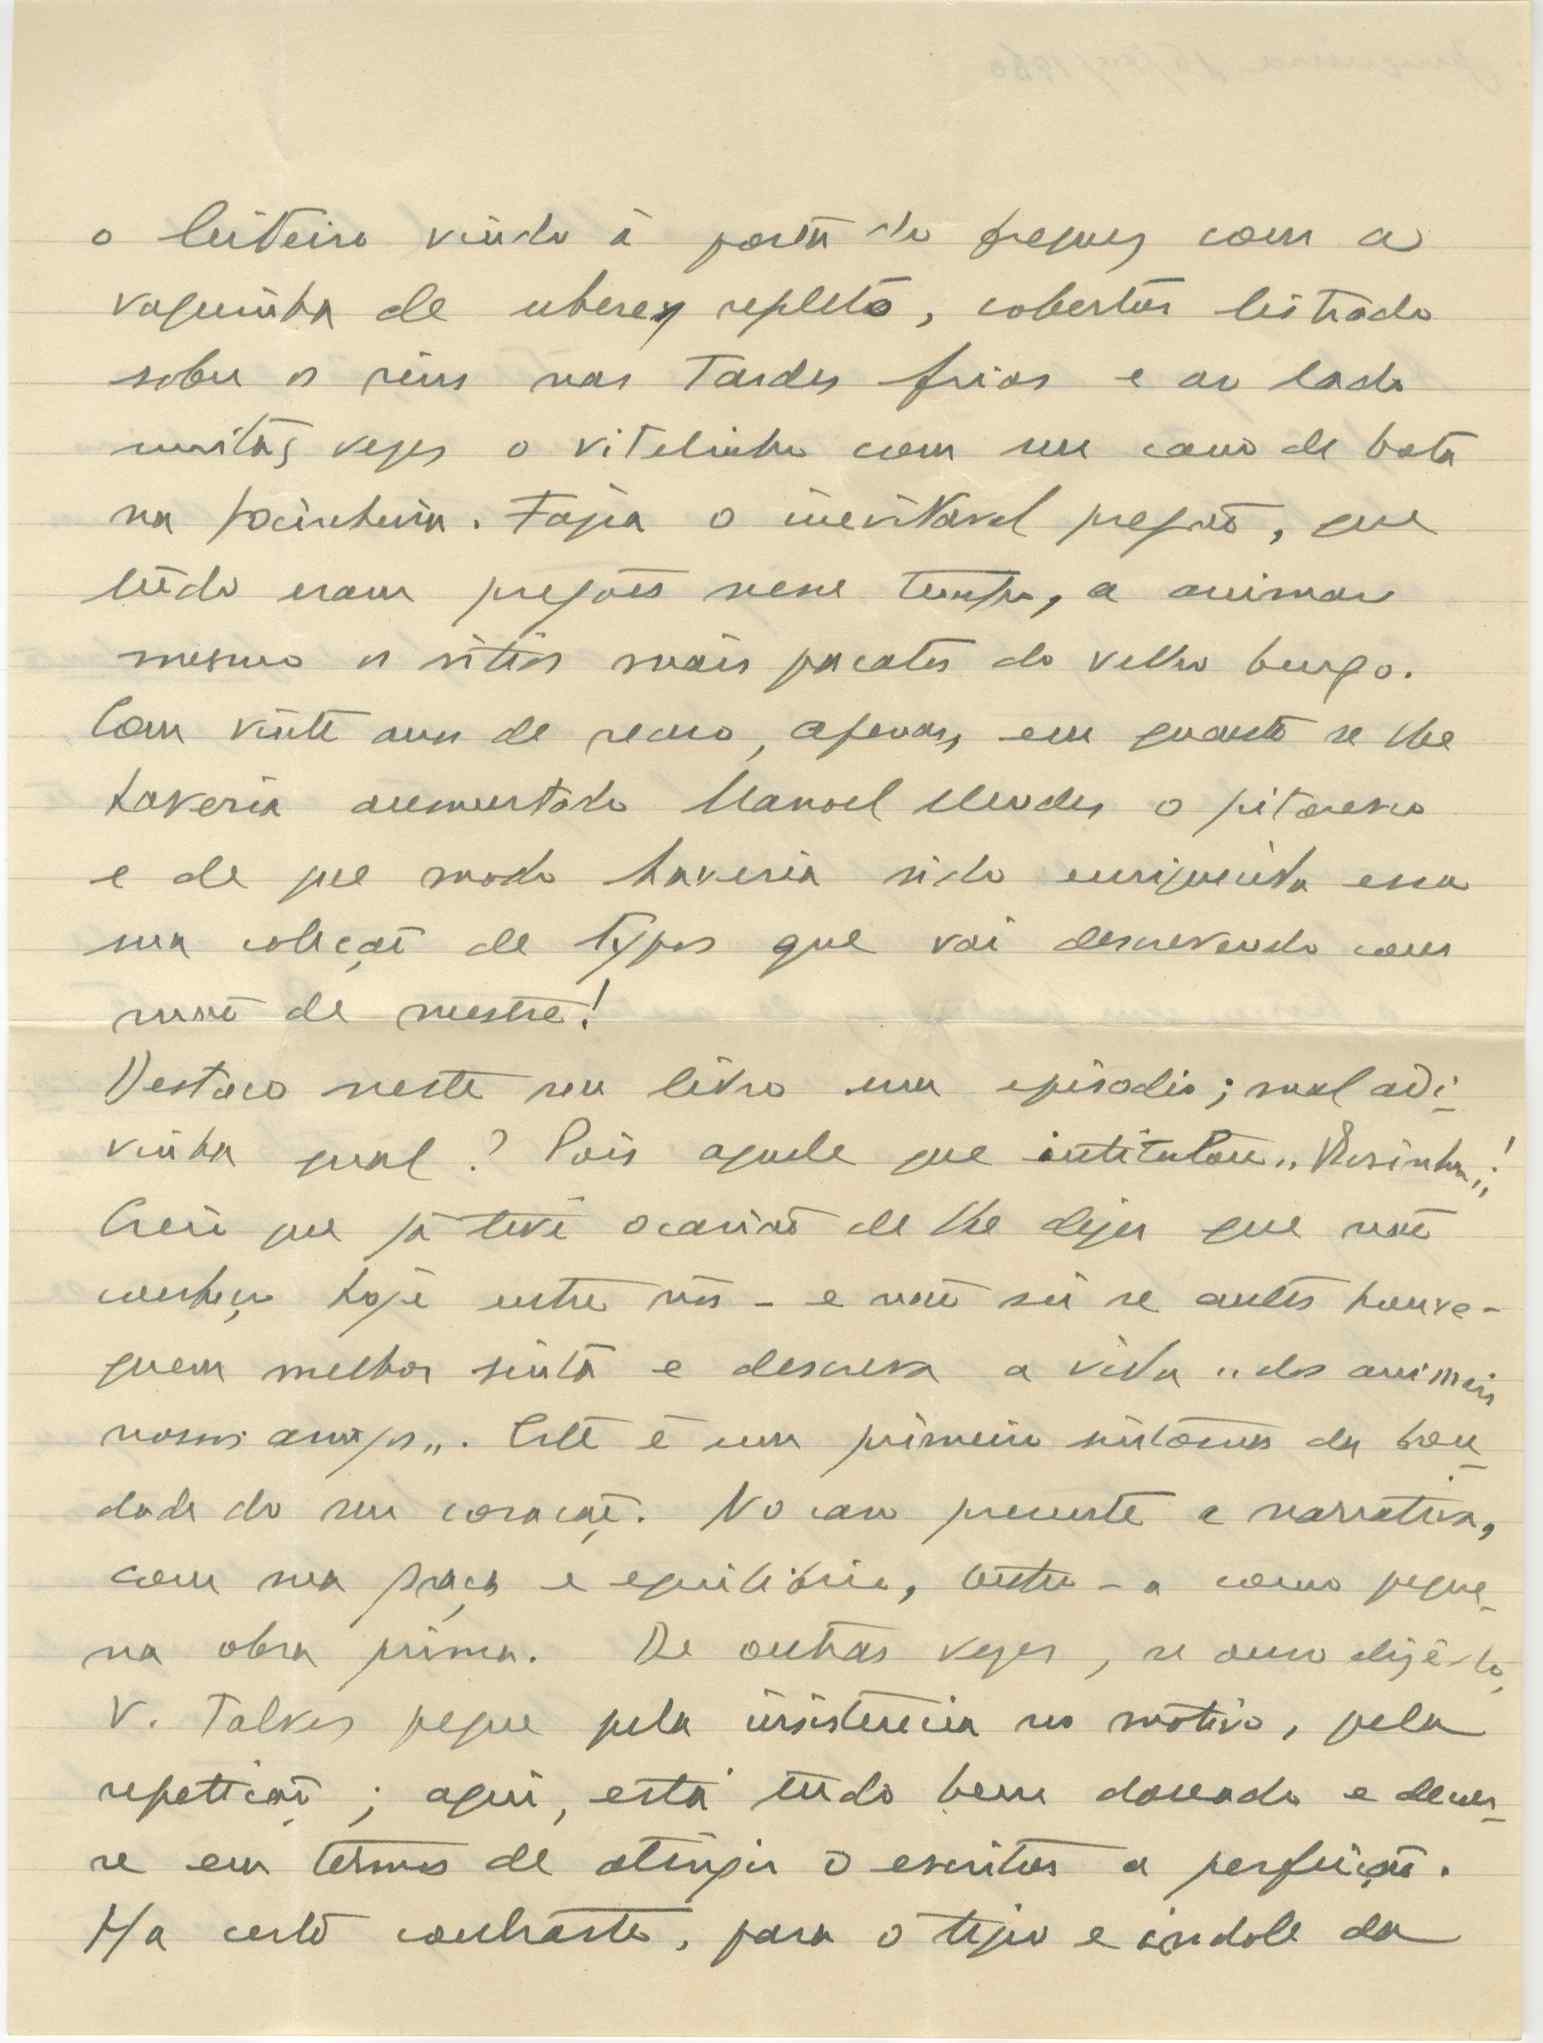 o leiteiro vindo à porta do freguez com a
vaquinha de uberes repleto, cobertor listrado
sobre os rins nas tardes frias e ao lado
muitas vezes o vitelinho com um cano de bota
na focinheira. Fazia o inevitavel pregão, que
tudo eram pregões nesse tempo, a animar
mesmo os sitios mais pacatos do velho burgo.
Com vinte anos de recuo, apenas, em quanto se lhe
haveria aumentado Manoel Mendes o pitoresco
e de que modo haveria sido enriquecida essa
sua coleção de typos que vai descrevendo com
mão de mestre!
Destaco neste seu livro um episodio; mal adi-
vinha qual? Pois aquele que intitulou
Creio que já tive ocasião de lhe dizer que não
conheço hoje entre nós - e não sei se antes houve -
quem melhor sinta e descreva a vida "dos animais
nossos amigos". Este é um primeiro sintoma da bon-
dade do seu coração. No caso presente a narrativa,
com sua graça e equilibrio, tenho-a como peque-
na obra prima. De outras vezes, se ouso dizê-lo,
V. Talvez peque pela insistencia no motivo, pela
repetição; aqui, está tudo bem doseado e decor-
re em termos de atingir o escritor a perfeição.
Ha certo contraste, para o tipo e indole da